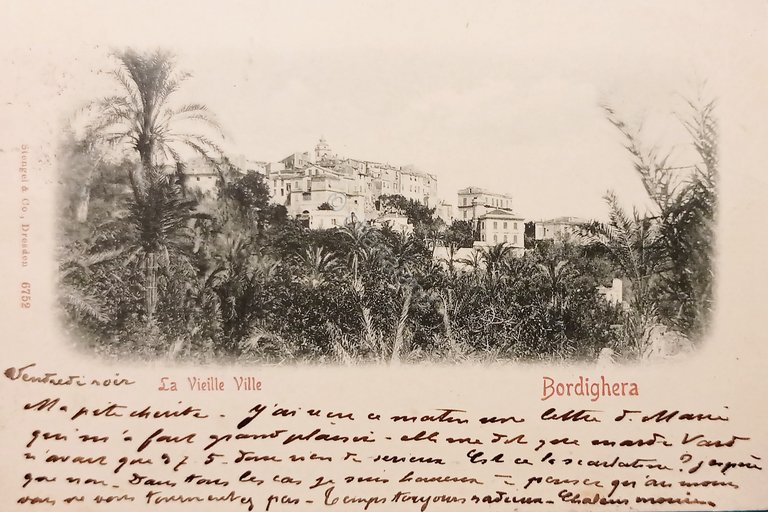 Stengel & Co., Dresden 6752
Vendredi soir
La Vieille Ville
Bordighera
Ma petite chérie - J'ai reçu ce matin une lettre de Marie
qui m'a fait grand plaisir - elle me dit que
n'avait que 37.5 - donc rien de sérieux. Est ce la scarlatine? J'espère
que non. Dans tous les cas je suis heureux de penser qu'au moins
vous ne vous tourmentez pas - Temps toujours radieux - Chaleur